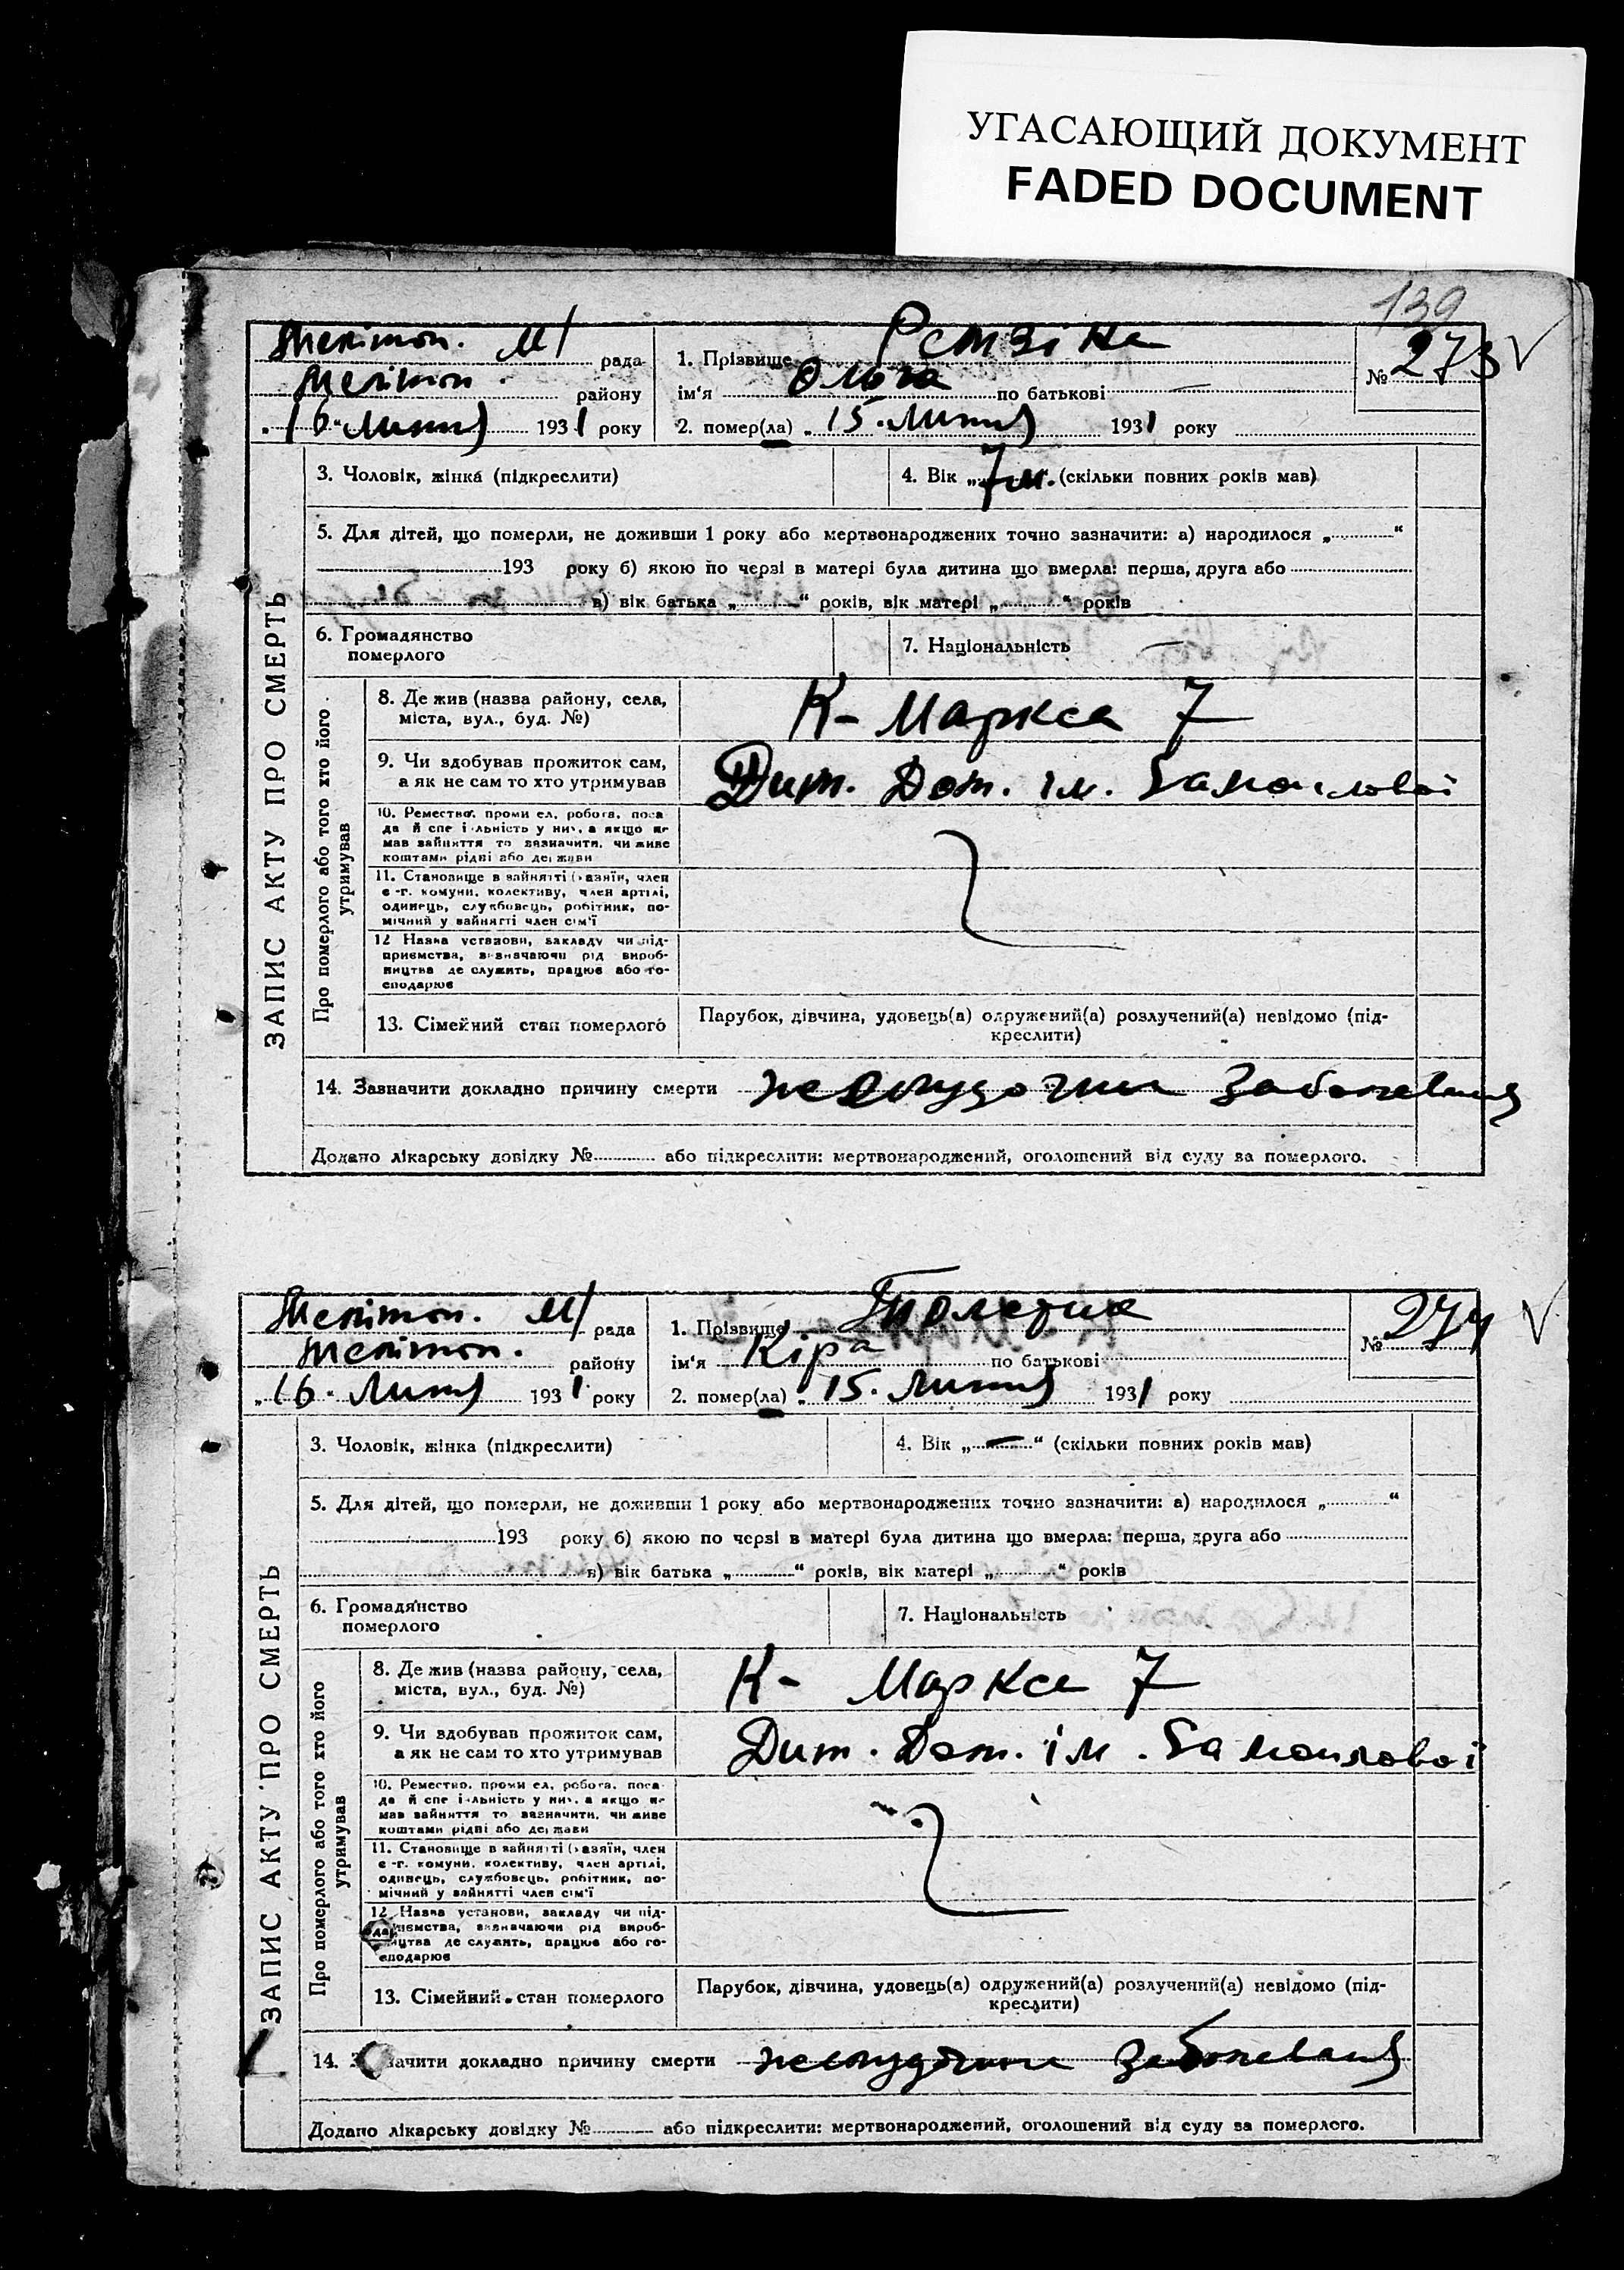 УГАСАЮЩИЙ ДОКУМЕНТ
FADED DOCUMENT
139
Меліт оп. М/ рада
Меліт оп. району
"16" Липня 1931 року
1. Прізвище Ремзіна
ім'я Ольга по батькові —
2. помер(ла) "15" Липня 1931 року
№ 273 V
ЗАПИС АКТУ ПРО СМЕРТЬ
3. Чоловік, жінка (підкреслити)
4. Вік „7 м. (скільки повних років мав)
5. Для дітей, що померли, не доживши 1 року або мертвонароджених точно зазначити: а) народилося „ “
193 року б) якою по черзі в матері була дитина що вмерла: перша, друга або
в) вік батька „ “ років, вік матері „ “ років
6. Громадянство
померлого
7. Національність —
Про померлого або того хто його
утримував
8. Де жив (назва району, села,
міста, вул., буд. №)
К- Маркса 7
9. Чи здобував прожиток сам,
а як не сам то хто утримував
Дит. Дом. ім. Самойлової
10. Ремество, проми ел, робота, поса
да й спе і льність у них, а якщо не
мав зайняття то зазначити, чи живе
коштами рідні або держави
11. Становище в зайнятті (хазяїн, член
с-г. комуни, колективу, член артілі,
одинець, службовець, робітник, по-
мічний у зайнятті член сім'ї
12 Назва установи, закладу чи під-
приємства, визначаючи рід вироб-
ництва де служить, працює або го-
сподарює
13. Сімейний стан померлого
Парубок, дівчина, удовець(а) одружений(а) розлучений(а) невідомо (під-
креслити)
14. Зазначити докладно причину смерти желудочни заболевания
Додано лікарську довідку № або підкреслити: мертвонароджений, оголошений від суду за померлого.
Меліт оп. М/ рада
Меліт оп. району
„16" Липня 1931 року
1. Прізвище
ім'я Кіра по батькові
2. помер(ла) „15. Липня 1931 року
№ 274 V
ЗАПИС АКТУ ПРО СМЕРТЬ
3. Чоловік, жінка (підкреслити)
4. Вік „—“ (скільки повних років мав)
5. Для дітей, що померли, не доживши 1 року або мертвонароджених точно зазначити: а) народилося „ “
193 року б) якою по черзі в матері була дитина що вмерла: перша, друга або
в) вік батька „ “ років, вік матері „ “ років
6. Громадянство
померлого
7. Національність
Про померлого або того хто його
утримував
8. Де жив (назва району, села,
міста, вул., буд. №)
К- Маркса 7
9. Чи здобував прожиток сам,
а як не сам то хто утримував
Дит. Дом. ім. Самойлової
10. Ремество, проми ел, робота, поса
да й спе і льність у них, а якщо не
мав зайняття то зазначити, чи живе
коштами рідні або держави
11. Становище в зайнятті (хазяїн, член
с-г. комуни, колективу, член артілі,
одинець, службовець, робітник, по-
мічний у зайнятті член сім'ї
12 Назва установи, закладу чи під-
приємства, визначаючи рід вироб-
ництва де служить, працює або го-
сподарює
13. Сімейний стан померлого
Парубок, дівчина, удовець(а) одружений(а) розлучений(а) невідомо (під-
креслити)
14. Зазначити докладно причину смерти желудочни заболевания
Додано лікарську довідку № або підкреслити: мертвонароджений, оголошений від суду за померлого.